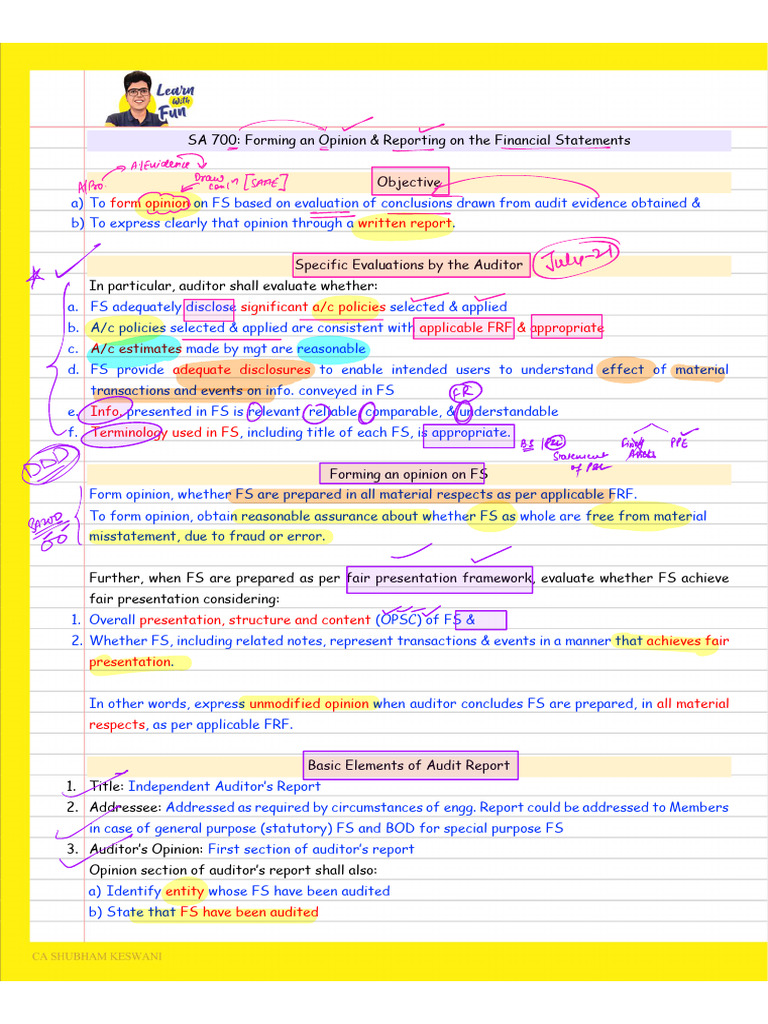 Learn
With
Fun
SA 700: Forming an Opinion & Reporting on the Financial Statements
A/Evidence
A/Pro.
Draw
[SAAE]
Objective
a) To form opinion on FS based on evaluation of conclusions drawn from audit evidence obtained &
b) To express clearly that opinion through a written report.
Specific Evaluations by the Auditor
July-21
In particular, auditor shall evaluate whether:
a. FS adequately disclose significant a/c policies selected & applied
b. A/c policies selected & applied are consistent with applicable FRF & appropriate
c. A/c estimates made by mgt are reasonable
d. FS provide adequate disclosures to enable intended users to understand effect of material
transactions and events on info. conveyed in FS
e. Info. presented in FS is relevant, reliable, comparable, & understandable
f. Terminology used in FS, including title of each FS, is appropriate.
BS / P&L
Statement
of P&L
Fixed
Assets
PPE
Forming an opinion on FS
Form opinion, whether FS are prepared in all material respects as per applicable FRF.
To form opinion, obtain reasonable assurance about whether FS as whole are free from material
misstatement, due to fraud or error.
Further, when FS are prepared as per fair presentation framework, evaluate whether FS achieve
fair presentation considering:
1. Overall presentation, structure and content (OPSC) of FS &
2. Whether FS, including related notes, represent transactions & events in a manner that achieves fair
presentation.
In other words, express unmodified opinion when auditor concludes FS are prepared, in all material
respects, as per applicable FRF.
Basic Elements of Audit Report
1. Title: Independent Auditor's Report
2. Addressee: Addressed as required by circumstances of engg. Report could be addressed to Members
in case of general purpose (statutory) FS and BOD for special purpose FS
3. Auditor's Opinion: First section of auditor's report
Opinion section of auditor's report shall also:
a) Identify entity whose FS have been audited
b) State that FS have been audited
CA SHUBHAM KESWANI